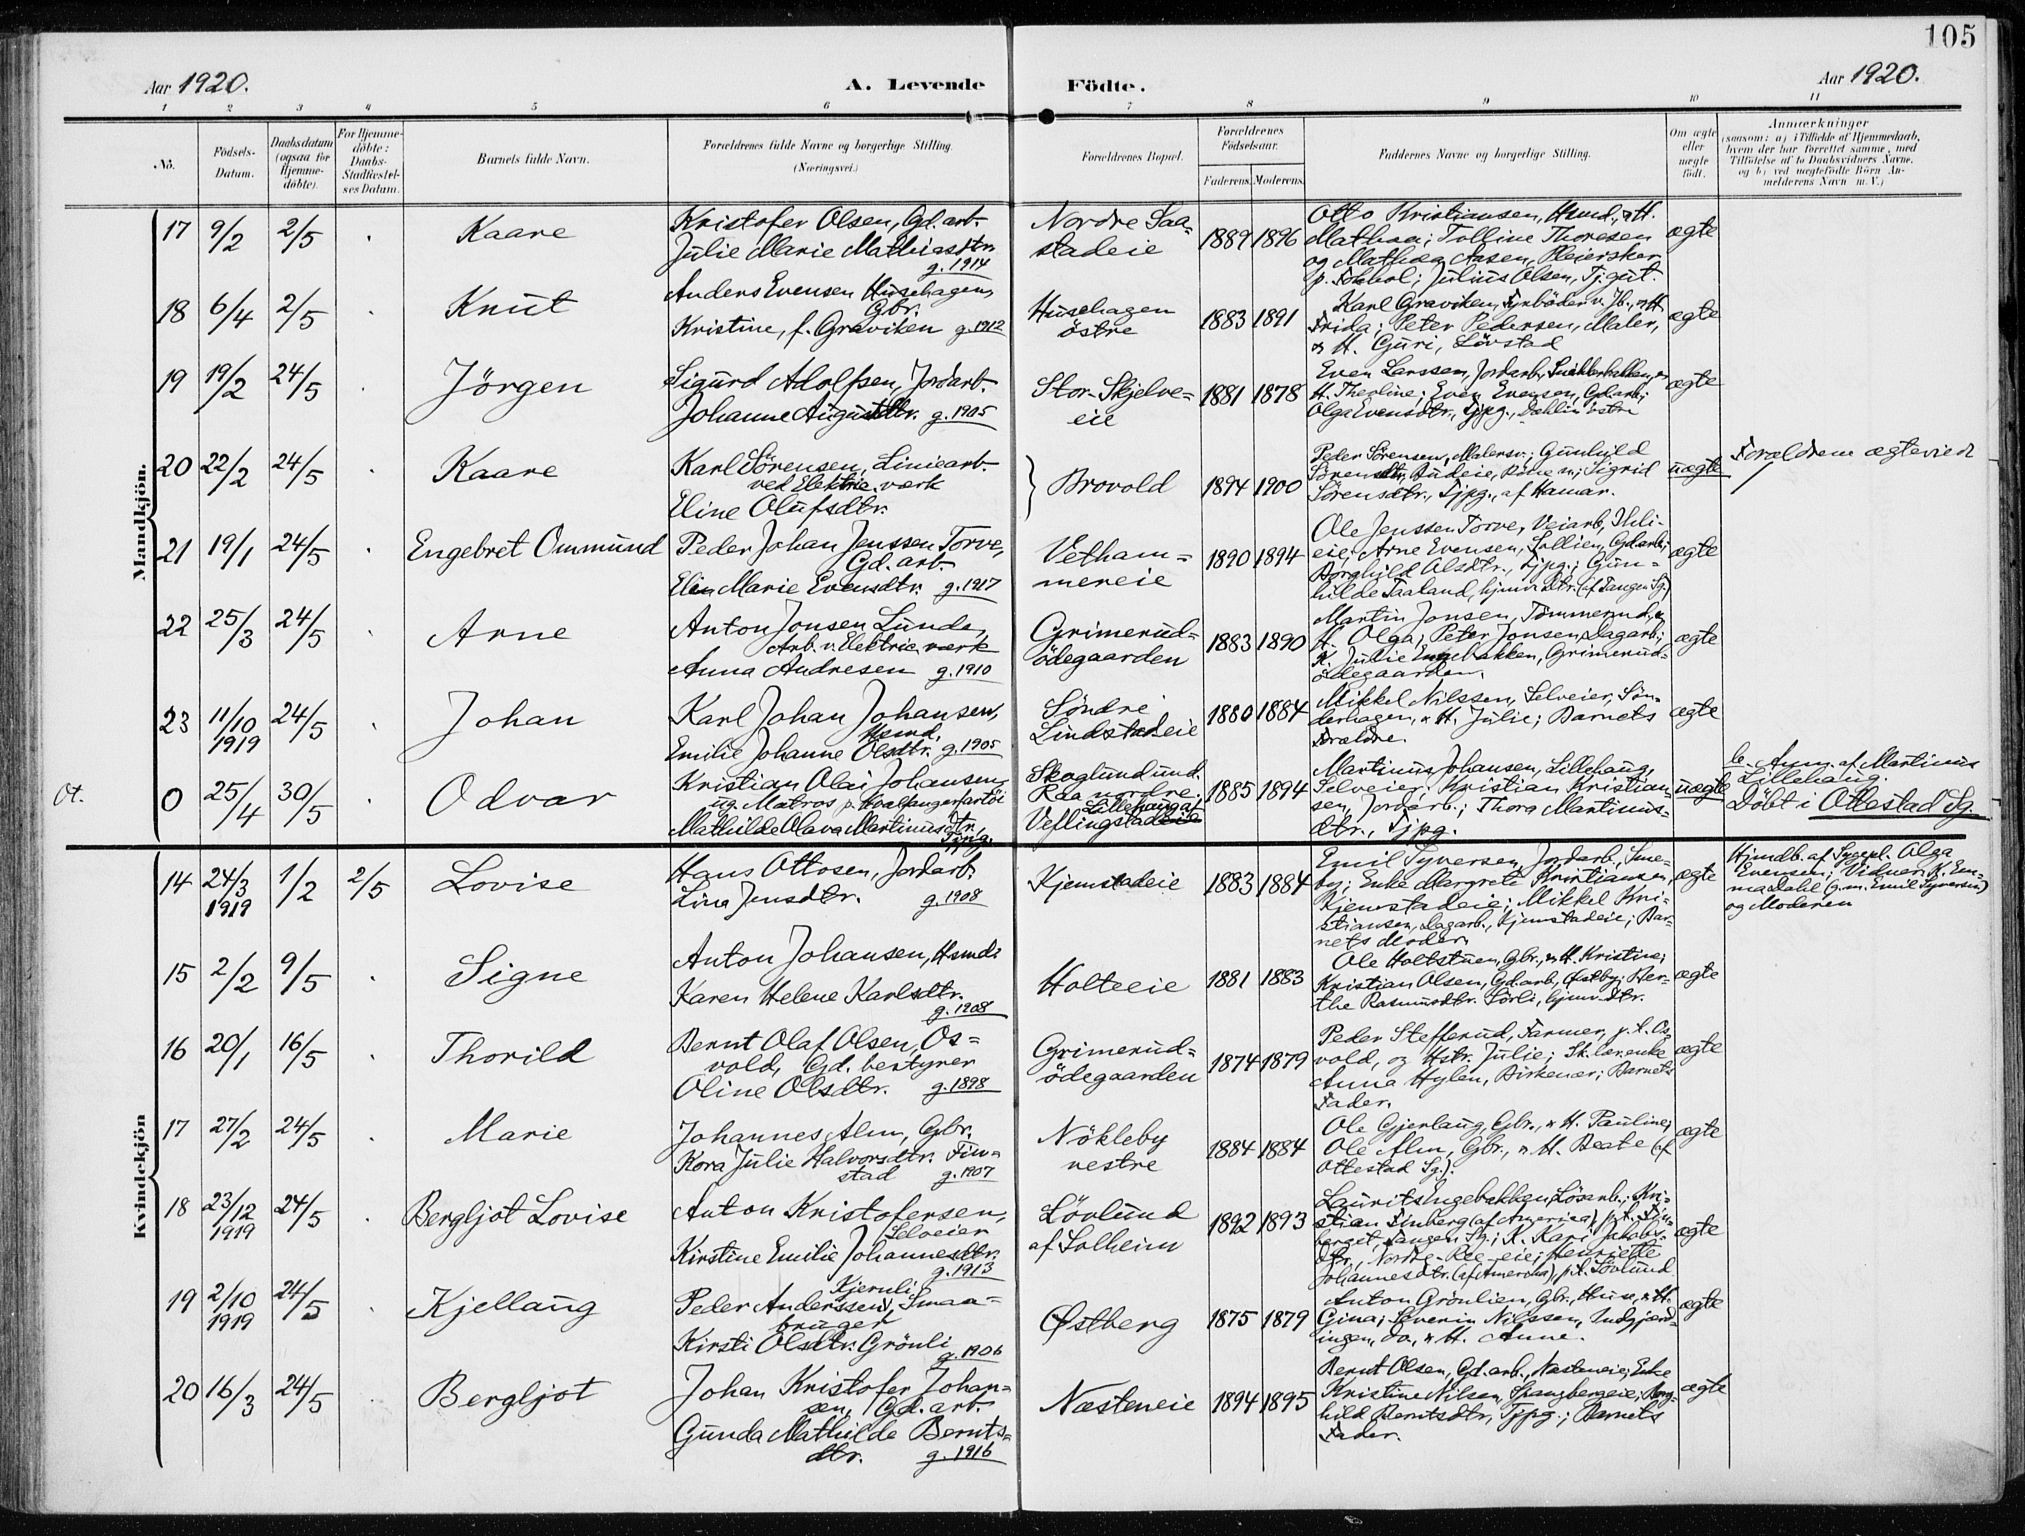 105
Aar 1920. A. Levende Födte. Aar 1920.
1 2 3 4 5 6 7 8 9 10 11
No. Födsels-Datum. Daabsdatum (ogsaa for Hjemmedöbte). For Hjemmedöbte: Daabs-Stadfæstelses Datum. Barnets fulde Navn. Forældrenes fulde Navne og borgerlige Stilling. (Næringsvei.) Forældrenes Bopæl. Forældrenes Födselsaar. Faderens. Moderens. Faddernes Navne og borgerlige Stilling. Om ægte eller uægte födt. Anmærkninger (saasom: a) i Tilfælde af Hjemmedaab, hvem der har forrettet samme, med Tilföielse af to Daabsvidners Navne, og b) ved uægtefödte Börn Anmelderens Navn m. V.)
Mandkjön.
17 9/2 2/5 Kaare
Kristofer Olsen, Gd. arb.
Julie Marie Mathiasdtr.
g. 1914
Nordre Saa=
stadeie
1889 1896
Otto Kristiansen, Hsmd., & H.
Mathea; Tolline Thoresen
og Mathea Aasen, Pleiersker
p. Fokhol; Julius Olsen, Tj.gut.
ægte
18 6/4 2/5 Knut
Anders Evensen Husehagen,
Gbr.
Kristine, f. Graviken g. 1912
Husehagen
östre
1883 1891
Karl Graviken, Fyrböder v. Jb., & H.
Frida; Peter Pedersen, Maler,
& H. Guri, Lövstad
ægte
19 19/2 24/5 Jörgen
Sigurd Adolfsen, Jordarb.
Johanne Augustdtr. g. 1905
Stor-Skjelve=
eie
1881 1878
Even Larssen, Jordarb., Snekkerbakken, &
H. Theoline; Even Evensen, Gd.arb.;
Olga Evensdtr., Tjpg., Dahlin östre
ægte
20 22/2 24/5 Kaare
Karl Sörensen, Liniearb.
ved Elektric. værk
Eline Olufsdtr.
Brovold
1894 1900
Peder Sörensen, Malersv.; Gunhild
Sörensdtr., Budeie, ; Sigrid
Sörensdtr., Tjpg., af Hamar.
uægte
Forældrene ægteviede
21 19/1 24/5 Engebret Ommund
Peder Johan Jenssen Torve,
Gd. arb.
Elen Marie Evensdtr. g. 1917
Vetham=
mereie
1890 1894
Ole Jenssen Torve, Veiarb., Ihli-
eie; Arne Evensen, Sollien, Gd.arb.;
Borghild Olsdtr., Tjpg.; Gun-
hilde Taaland, hjemv. dtr. (af Tangen Sg.)
ægte
22 25/3 24/5 Arne
Anton Jonsen Lunde,
Arb. v. Elektric. værk
Anna Andresen g. 1910
Grimerud=
ödegaarden
1883 1890
Martin Jonsen, Tömmermd., &
H. Olga; Peter Jonsen, Dagarb.;
K. Julie Engebakken, Grimerud-
ödegaarden.
ægte
23 11/10 1919 24/5 Johan
Karl Johan Johansen,
Hsmd.
Emilie Johanne Olsdtr. g. 1905
Söndre
Lindstadeie
1880 1884
Mikkel Nilssen, Selveier, Sön-
derhagen, & H. Julie; Barnets
Forældre.
ægte
Ot. 0 25/4 30/5 Odvar
Kristian Olai Johansen,
ug. Matros p. hvalfangerfartöi
Mathilde Olava Martinusdtr.,
Tjpg.
Skoglund und.
Raa nordre.
Lillehaug af
Veflingstadeie
1885 1894
Martinus Johansen, Lillehaug,
Selveier; Kristian Kristian-
sen, Jordarb.; Thora Martinus-
dtr., Tjpg.
uægte
b. Anm. af Martinus
Lillehaug.
Döbt i Ottestad Sg.
Kvindekjön
14 24/3 1919 1/2 2/5 Lovise
Hans Ottosen, Jordarb.
Lina Jensdtr. g. 1908
Kjemstadeie
1883 1884
Emil Syversen, Jordarb., Sme-
by; Enke Margrete Kristiansen,
Kjemstadeie; Mikkel Kri-
stiansen, Dagarb., Kjemstadeie; Bar-
nets Moder.
ægte
Hjmdb. af Sygepl. Olga
Evensen; Vidner: K. Em-
ma Dahl (g.m. Emil Syversen)
og Moderen
15 2/2 9/5 Signe
Anton Johansen, Hsmd.
Karen Helene Karlsdtr.
g. 1908
Holteeie
1881 1883
Ole Holtstuen, Gbr., & H. Kristine;
Kristian Olsen, Gd.arb., Östby; Ber-
the Rasmusdtr. Sörli, hjemv. dtr.
ægte
16 20/1 16/5 Thorild
Bernt Olaf Olsen, Os=
vold, Gd. bestyrer
Oline Olsdtr. g. 1898
Grimerud=
ödegaarden
1874 1879
Peder Stefferud, Farmer, p.t. Os-
vold, og Hstr. Julie; Sk. lær. enke
Anna Hylen, Birkenær; Barnets
Fader.
ægte
17 27/2 24/5 Marie
Johannes Alm, Gbr.
Kora Julie Halvorsdtr. Fin=
stad g. 1907
Nökleby
vestre
1884 1884
Ole Gjerlaug, Gbr., & H. Pauline;
Ole Alm, Gbr., & H. Beate (af
Ottestad Sg.).
ægte
18 23/12 1919 24/5 Bergljot Lovise
Anton Kristofersen,
Selveier
Kirstine Emilie Johannesdtr.
g. 1913
Lövlund
af Solheim
1892 1893
Laurits Engebakken, Lösarb.; Kri-
stian Finberg (af Amerika), p.t. Fin-
berget, Tangen Sg.; K. Kari Jakobs-
dtr., Nordre-Ree-eie; Henriette
Johannesdtr. (af Amerika), p.t. Lövlund
ægte
19 2/10 1919 24/5 Kjellaug
Kjernli
Peder Anderssen, Smaa-
bruger
Kirsti Olsdtr. Grönli
g. 1906
Østberg
1875 1879
Anton Grönlien, Gbr., Huse, & H.
Gina; Severin Nilssen, Indgjærd-
ingen, do., & H. Anne.
ægte
20 16/3 24/5 Bergljot
Johan Kristofer Johan=
sen, Gd. arb.
Gunda Mathilde Bernts=
dtr. g. 1916
Næsteneie
1894 1895
Bernt Olsen, Gd. arb., Næsteneie; Enke
Kristine Nilsen, Spangbergeie; Borg-
hild Berntsdtr., Tjpg.; Barnets
Fader.
ægte